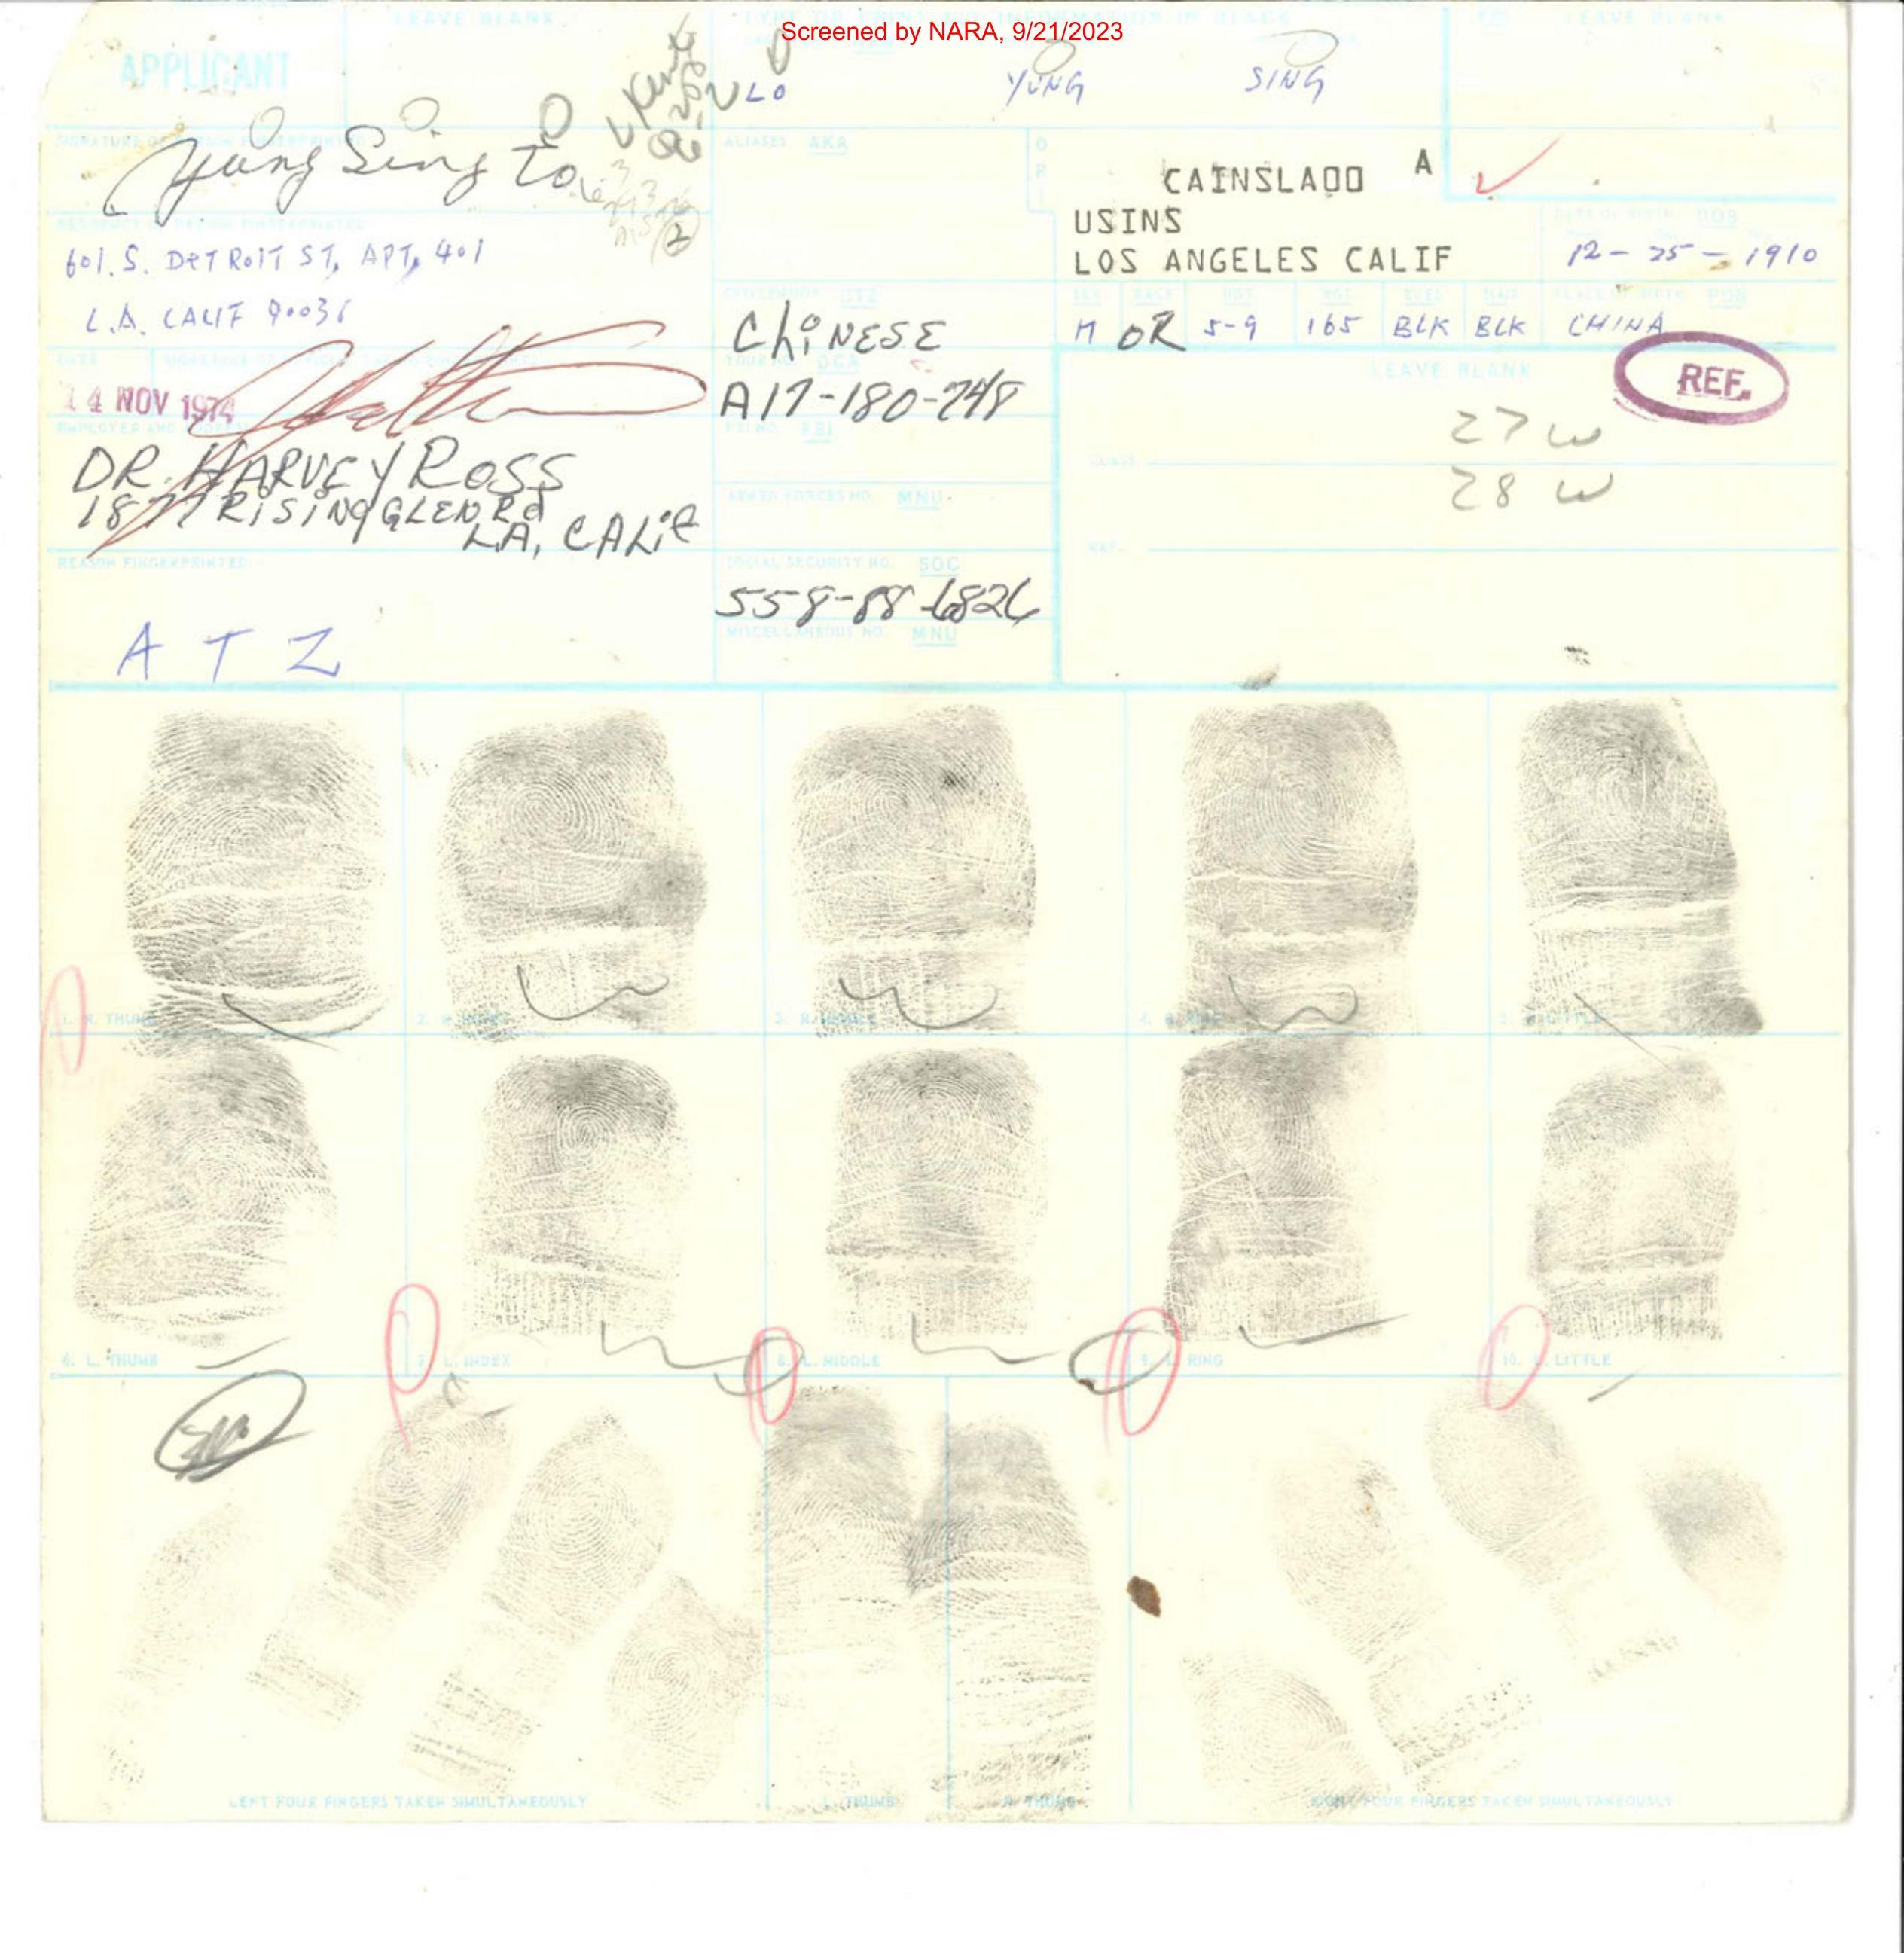 Screened by NARA, 9/21/2023
LEAVE BLANK
TYPE OR PRINT ALL INFORMATION IN BLACK
LEAVE BLANK
APPLICANT
LO YUNG SING
SIGNATURE OF PERSON FINGERPRINTED
Yung Sing Lo
ALIASES AKA
O
R
I
CAINSLA00 A
USINS
LOS ANGELES CALIF
RESIDENCE OF PERSON FINGERPRINTED
601. S. DETROIT ST, APT, 401
L.A. CALIF 90036
DATE OF BIRTH DOB
12-25-1910
CITIZENSHIP CTZ
CHINESE
SEX RACE HGT. WGT. EYES HAIR PLACE OF BIRTH POB
M OR 5-9 165 BLK BLK CHINA
DATE
SIGNATURE OF OFFICIAL TAKING FINGERPRINTS
14 NOV 1974
YOUR NO. OCA
A17-180-748
LEAVE BLANK
REF.
27 W
28 W
EMPLOYER AND ADDRESS
DR. HARVEY ROSS
1877 RISING GLEN Rd
LA, CALIF
FBI NO. FBI
CLASS
ARMED FORCES NO. MNU
REF.
REASON FINGERPRINTED
A T Z
SOCIAL SECURITY NO. SOC
558-88-6826
MISCELLANEOUS NO. MNU
1. R. THUMB
2. R. INDEX
3. R. MIDDLE
4. R. RING
5. R. LITTLE
6. L. THUMB
7. L. INDEX
8. L. MIDDLE
9. L. RING
10. L. LITTLE
LEFT FOUR FINGERS TAKEN SIMULTANEOUSLY
L. THUMB
R. THUMB
RIGHT FOUR FINGERS TAKEN SIMULTANEOUSLY